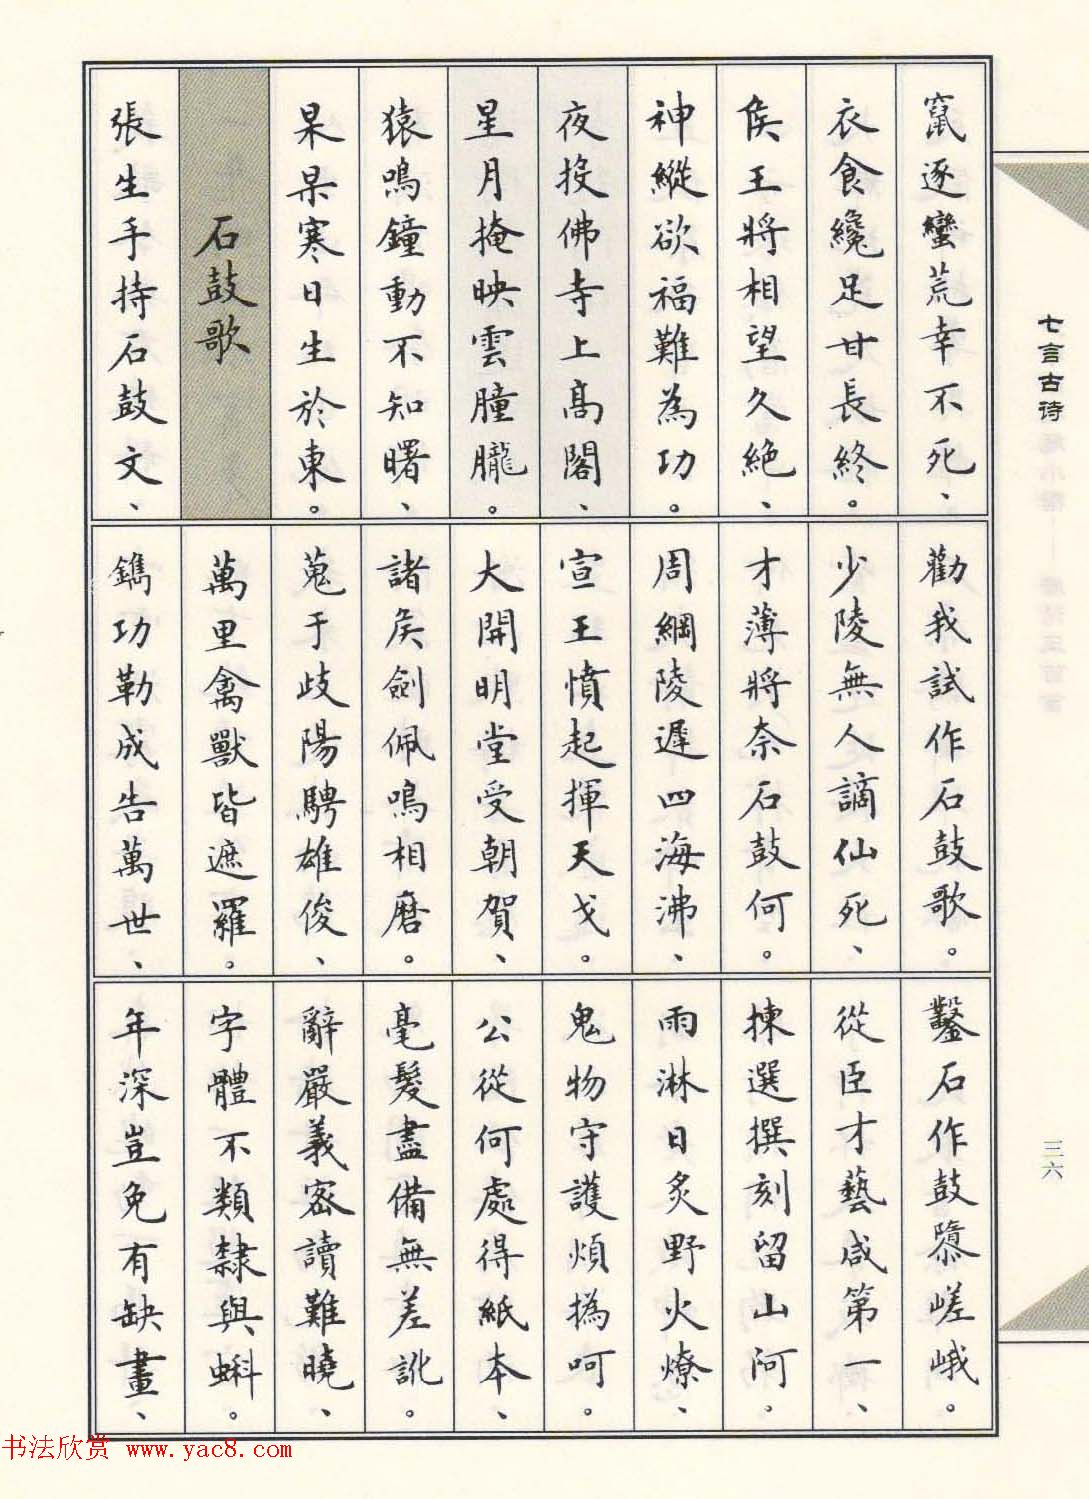 竄逐蠻荒幸不死、
衣食纔足甘長終。
侯王將相望久絕、
神縱欲福難為功。
夜投佛寺上高閣、
星月掩映雲朣朧。
猿鳴鐘動不知曙、
杲杲寒日生於東。
石鼓歌
張生手持石鼓文、
勸我試作石鼓歌。
少陵無人謫仙死、
才薄將奈石鼓何。
周綱陵遲四海沸、
宣王憤起揮天戈。
大開明堂受朝賀、
諸侯劍佩鳴相磨。
蒐于歧陽騁雄俊、
萬里禽獸皆遮羅。
鐫功勒成告萬世、
鑿石作鼓隳嵯峨。
從臣才藝咸第一、
揀選撰刻留山阿。
雨淋日炙野火燎、
鬼物守護煩撝呵。
公從何處得紙本、
毫髮盡備無差訛。
辭嚴義密讀難曉、
字體不類隸與蝌。
年深豈免有缺畫、
七言古诗
三六
书法欣赏 www.yac8.com